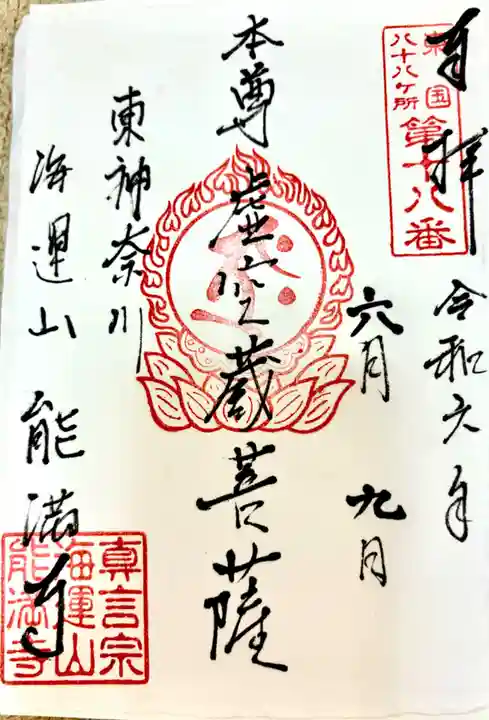 奉拝
東国
八十八ケ所
第十八番
令和六年
六月
九日
本尊 虚空蔵菩薩
東神奈川
海運山 能満寺
真言宗
海運山
能満寺